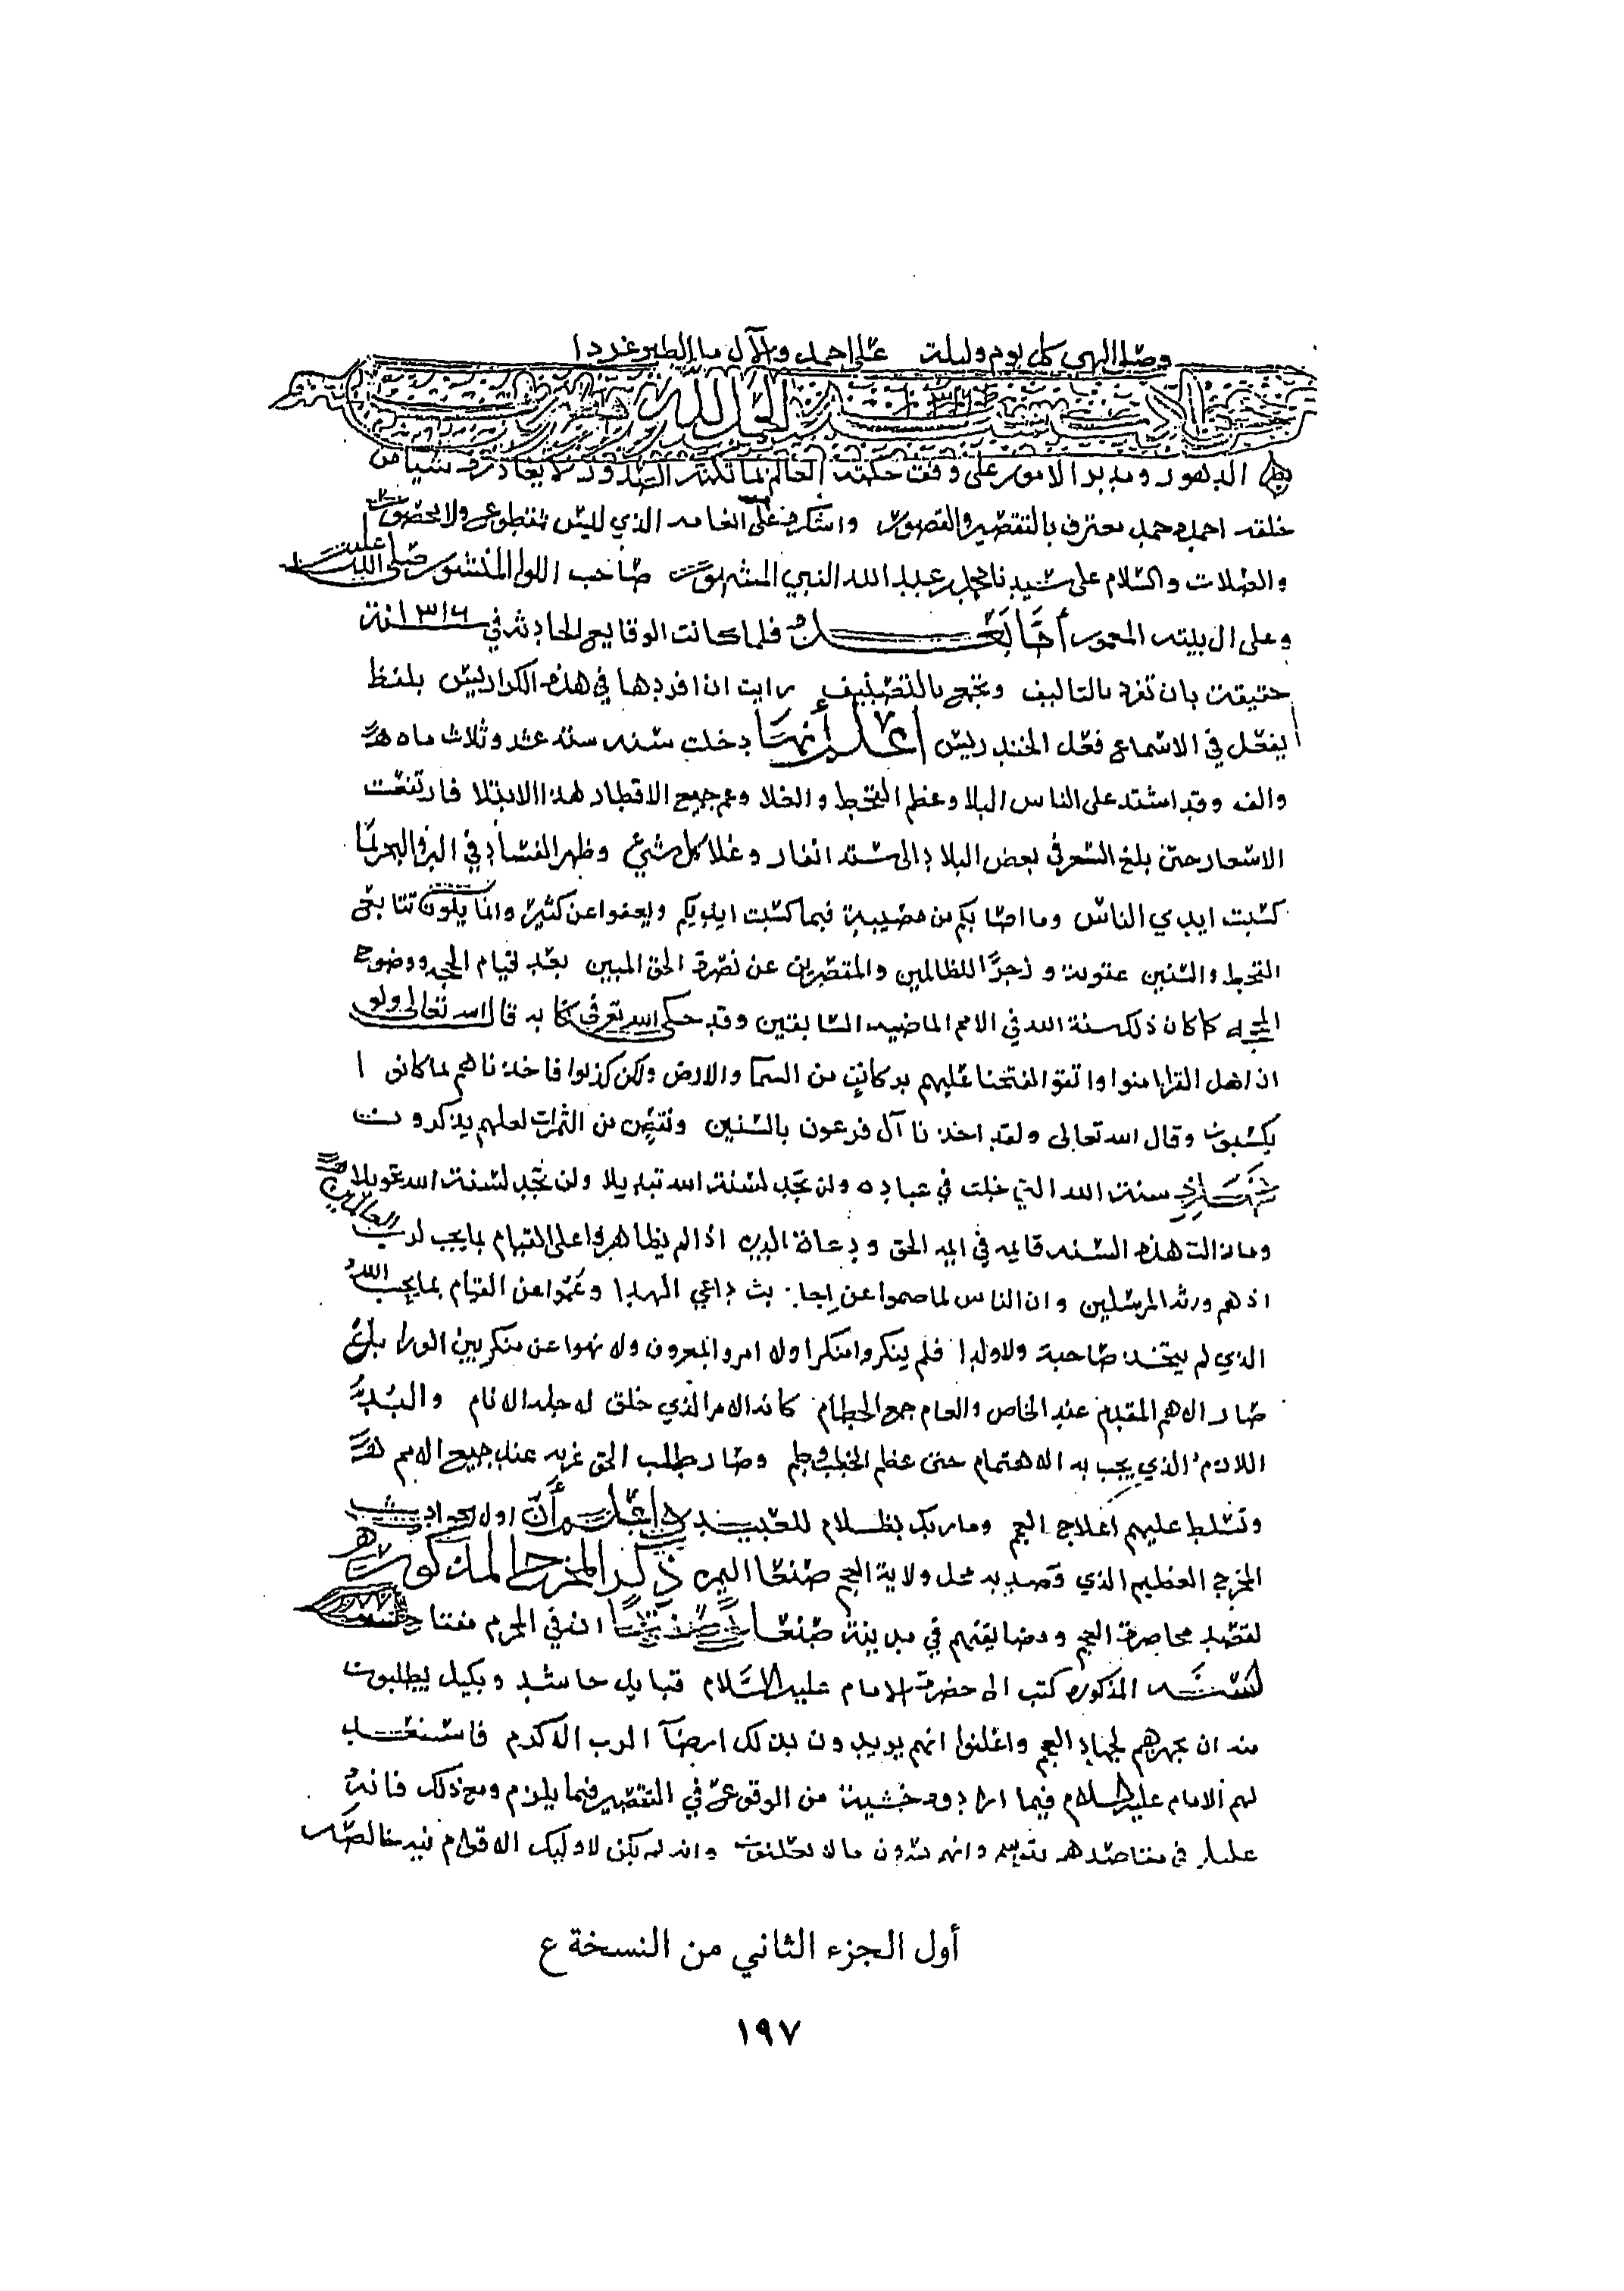 وصلى الهي كل يوم وليلة على احمد والآل ما الطير غردا
حوادث سنة ١٣١٦ الحمد لله
الدهور ومدبر الامور على وفق حكمته العالم بما تكنه الصدور لا يغادر شيا من
خلقه احمده حمد معترف بالتقصير والقصور واشكره على انعامه الذي ليس بمقطوع ولا محصور
والصلات والسلام على سيدنا محمد بن عبد الله النبي المشهور صاحب اللوا المنشور صلى الله عليه
وعلى ال بيته المعمور أما بعد فلما كانت الوقايع الحادثه في ١٣١٦ سنة
حقيقة بان تفرد بالتاليف وتجمع بالتصنيف رايت ان افردها في هذه الكراريس بلفظ
يفعل في الاسماع فعل الخندريس اعلم أنها دخلت سنه ستة عشر وثلاث ماه
والف وقد اشتد على الناس البلا وعظم القحط والغلا وعم جميع الاقطار هذا الابتلا فارتفعت
الاسعار حتى بلغ السعر في بعض البلاد الى ستة انفار وغلا كل شيء وظهر الفساد في البر والبحر بما
كسبت ايدي الناس وما اصابكم من مصيبة فبما كسبت ايديكم ويعفوا عن كثير وانما يكون تتابع
القحط والسنين عقوبة وزجرًا للظالمين والمقصرين عن نصرة الحق المبين بعد قيام الحجه ووضوح
المحجه كما كان ذلك سنة الله في الامم الماضيه السابقين وقد حكى الله تع في كتابه قال الله تعالى ولو
ان اهل القرا امنوا واتقو الفتحنا عليهم بركات من السما والارض ولكن كذبوا فاخذناهم بما كانوا
يكسبون وقال الله تعالى ولقد اخذنا آل فرعون بالسنين ونقص من الثمرات لعلهم يذكرون
سنة الله التي خلت في عباده ولن تجد لسنة الله تبديلا ولن تجد لسنة الله تحويلا
وما زالت هذه السنه قايمه في ايمه الحق ودعاة الدين اذا لم يظاهروا على القيام بما يجب لرب العالمين
اذ هم ورثه المرسلين وان الناس لما صموا عن اجابة داعي الهدا وعموا عن القيام بما يجب لله
الذي لم يتخذ صاحبة ولا ولدا فلم ينكروا منكرا ولا امروا بالمعروف ولا نهوا عن منكر بين الورا بل
صار الاهم المقدم عند الخاص والعام جمع الحطام كانه الامر الذي خلق له جلد الانام والبد
اللازم الذي يجب به الاهتمام حتى عظم الخطب وطم وصار طلب الحق غريه عند جميع الامم
وتسلط عليهم اعلاج العجم وما ربك بظلام للعبيد واعلم أن اول الحوادث
المخرج العظيم الذي قصد به محل ولاية العجم صنعا اليمن ذكر المخرج المذكور
لقصد محاصرة العجم ومضايقتهم في مدينة صنعا انه في المحرم مفتاح
السنه المذكوره كتب الى حضرة الامام عليه السلام قبايل حاشد وبكيل يطلبون
منه ان يجهزهم لجهاد العجم واعلنوا انهم يريدون بذلك ارضآ الرب الاكرم فاسعد
لهم الامام عليه السلام فيما ارادوه خشية من الوقوع في التقصير فيما يلزم ومع ذلك فانه
عليم في مقاصدهم وانهم يسرون ما لا يعلنون وانه لم يكن لاوليك الاقوام نيه خالصه
أول الجزء الثاني من النسخة ع
١٩٧